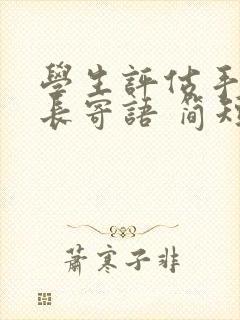 學生評估手
長寄語 簡短
蕭寒子非